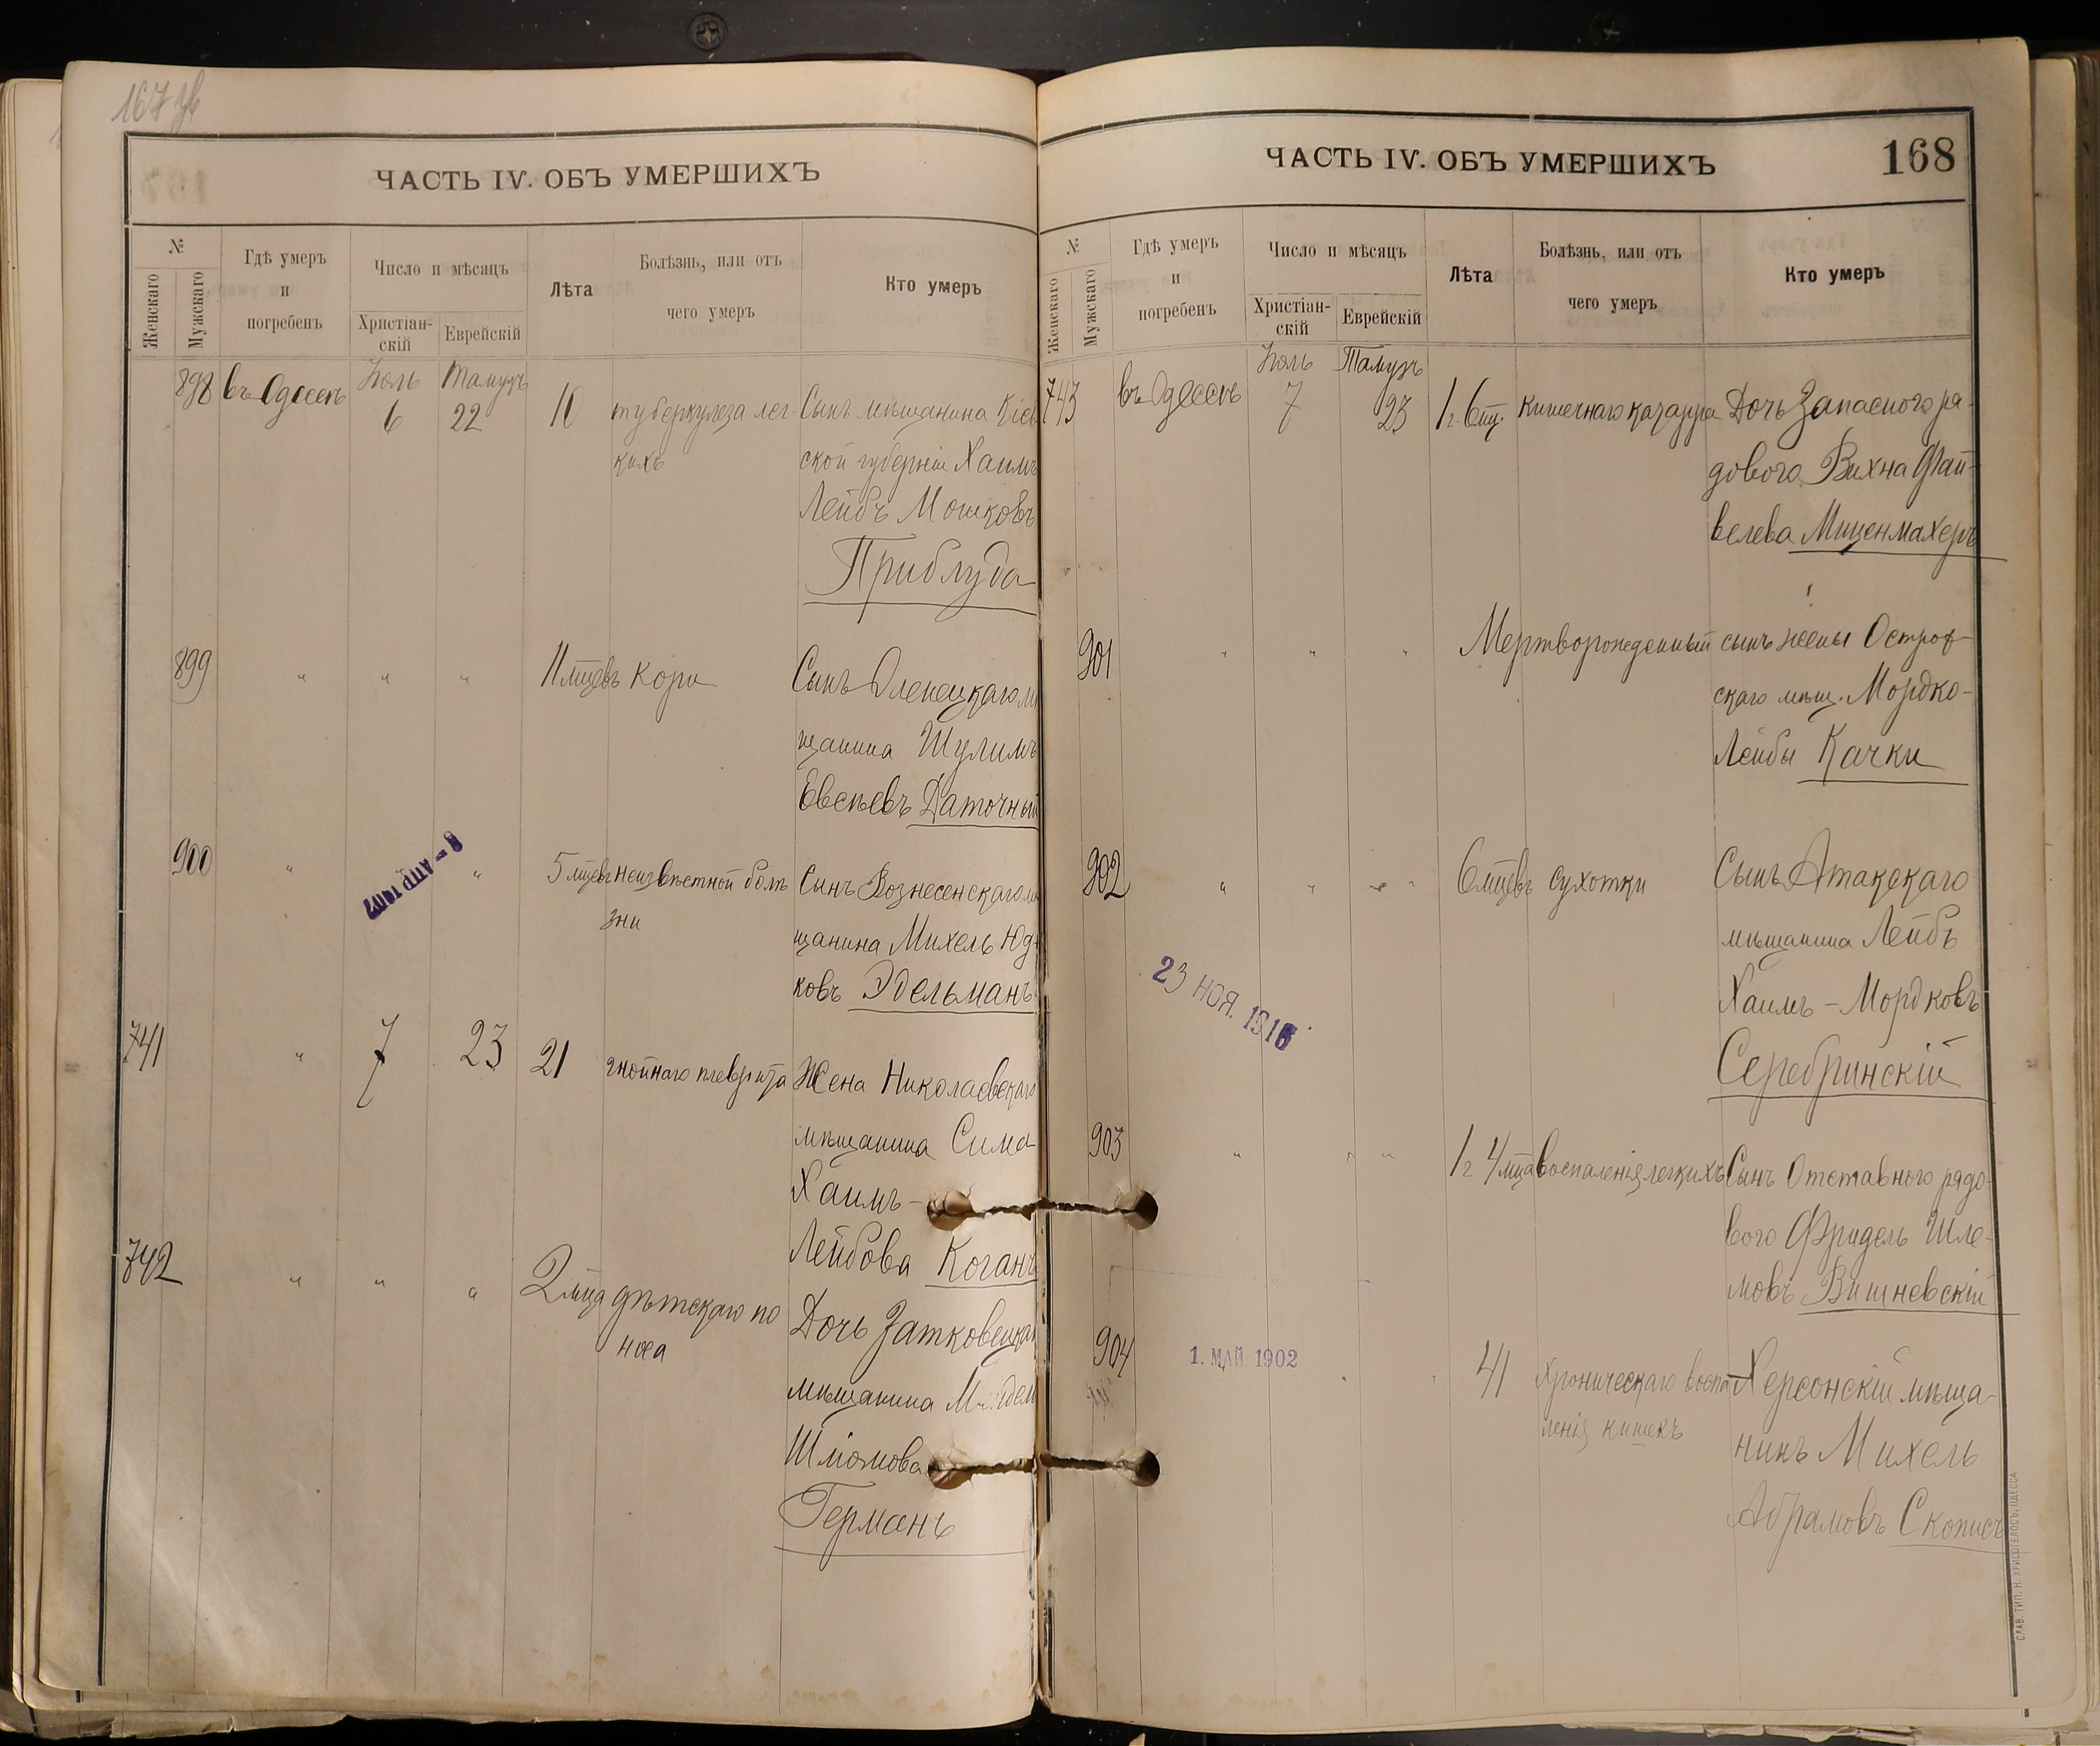 167 зв
ЧАСТЬ IV. ОБЪ УМЕРШИХЪ
№
Женскаго
Мужскаго
Гдѣ умеръ
и
погребенъ
Число и мѣсяцъ
Христіан-
скій
Еврейскій
Лѣта
Болѣзнь, или отъ
чего умеръ
Кто умеръ
898 въ Одессѣ Іюль 6 Тамузъ 22 10 туберкулеза лег- Сынъ мѣщанина Кіев
кихъ ской губерніи Хаимъ
Лейбъ Мошковъ
Приблуда
899 " " " 11 мцевъ кори Сынъ мѣ
щанина Шулимъ
Евсѣевъ Даточный
900 " " 5 мцевъ неизвѣстной болѣ Сынъ Вознесенскаго мѣ
8 - АПР 1907
зни щанина Михель Юд
ковъ Эдельманъ
741 " 7 23 21 гнойнаго плеврита Жена Николаевскаго
мѣщанина Сима
Хаимъ-
Лейбова Коганъ
742 " " " 2 мца дѣтскаго по Дочь Затковецкаго
носа мѣщанина
Шліомова
Германъ
ЧАСТЬ IV. ОБЪ УМЕРШИХЪ
168
№
Женскаго
Мужскаго
Гдѣ умеръ
и
погребенъ
Число и мѣсяцъ
Христіан-
скій
Еврейскій
Лѣта
Болѣзнь, или отъ
чего умеръ
Кто умеръ
743 въ Одессѣ Іюль 7 Тамузъ 23 1 г. 6 мц. кишечнаго катарра Дочь Запаснаго ря-
дового Вихна Фай-
велева Миценмахеръ
901 " " " Мертворожденный сынъ жены Остров-
скаго мѣщ. Мордко-
Лейбы Качки
902 " " " 6 мцевъ сухотки Сынъ Атакскаго
мѣщанина Лейбъ
23 НОЯ. 1916
Хаимъ-Мордковъ
Серебринскій
903 " " " 1 г 4 мца воспаленія легкихъ Сынъ Отставного рядо-
вого Фридель Шле-
мовъ Вишневскій
904 41 хроническаго воспа- Херсонскій мѣща-
1. МАЙ 1902
ленія кишекъ нинъ Михель
Абрамовъ
СЛАВ. ТИП. Н. ХРИСОГЕЛОСЪ, ОДЕССА